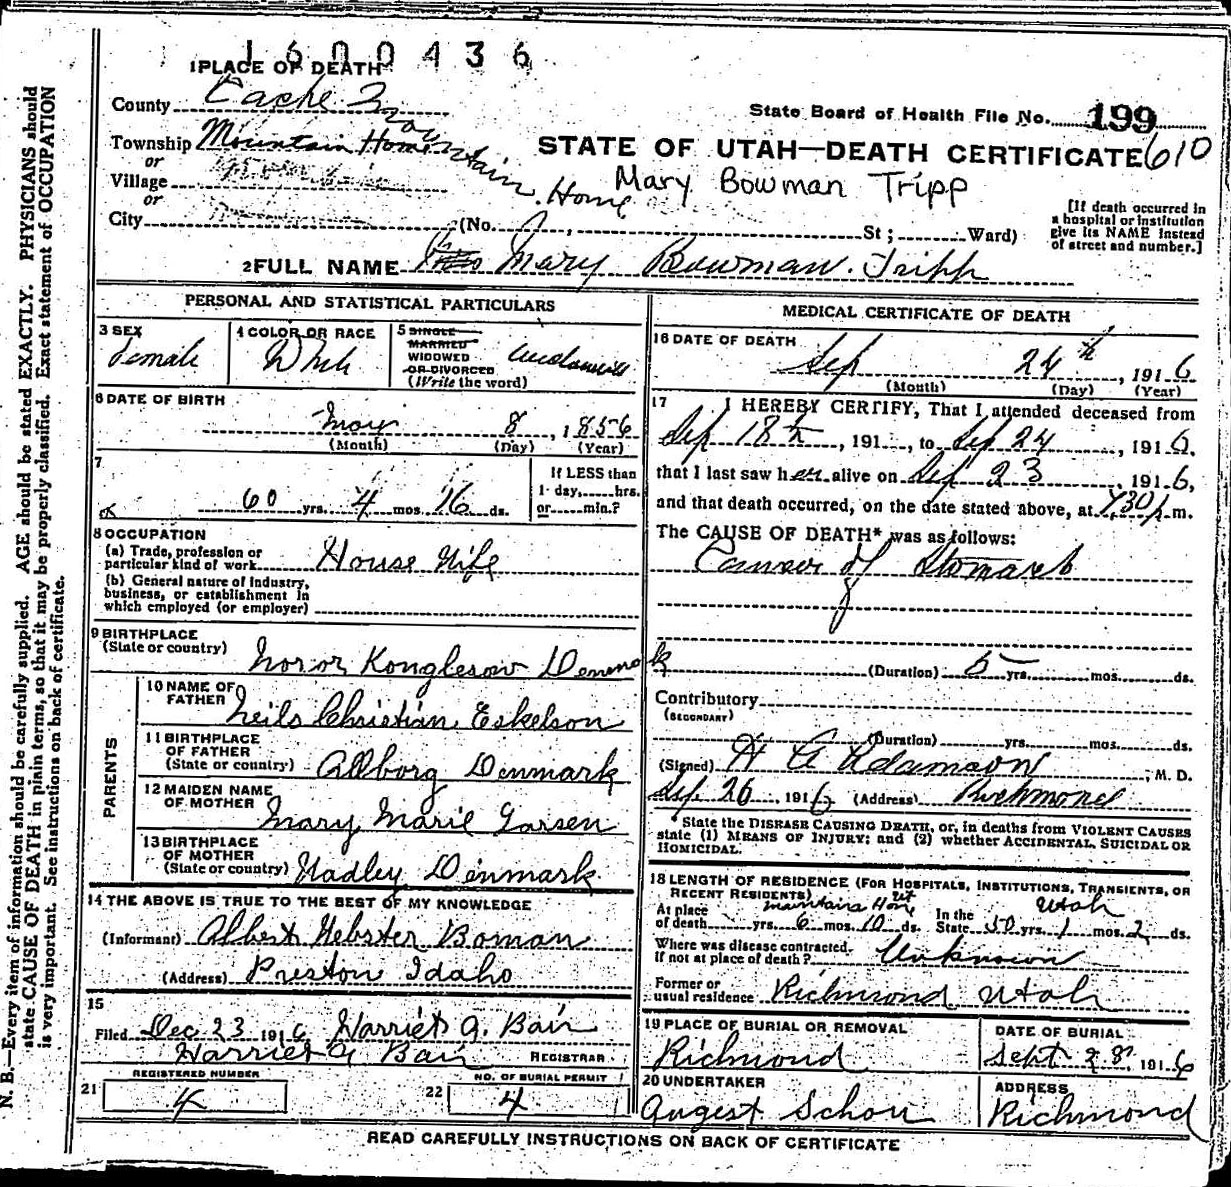 1600436
1 PLACE OF DEATH
County Cache
State Board of Health File No. 199
Township Mountain Home Mountain Home
STATE OF UTAH—DEATH CERTIFICATE 610
or
Village
Mary Bowman Tripp
or
City (No. , St; Ward)
[If death occurred in
a hospital or institution
give its NAME instead
of street and number.]
2 FULL NAME Mary Bowman Tripp
PERSONAL AND STATISTICAL PARTICULARS
3 SEX
Female
4 COLOR OR RACE
Whit
5 SINGLE
MARRIED
WIDOWED
OR DIVORCED
(Write the word)
6 DATE OF BIRTH
May 8, 1856
(Month) (Day) (Year)
7
60 yrs. 4 mos. 16 ds.
If LESS than
1 day, hrs.
or min.?
8 OCCUPATION
(a) Trade, profession or
particular kind of work House Wife
(b) General nature of Industry,
business, or establishment in
which employed (or employer)
9 BIRTHPLACE
(State or country) Konglesow Denmark
PARENTS
10 NAME OF
FATHER Neils Christian Eskelson
11 BIRTHPLACE
OF FATHER
(State or country) Allborg Denmark
12 MAIDEN NAME
OF MOTHER Mary Marie Larsen
13 BIRTHPLACE
OF MOTHER
(State or country) Hadley Denmark
14 THE ABOVE IS TRUE TO THE BEST OF MY KNOWLEDGE
(Informant) Albert Webster Boman
(Address) Preston Idaho
15
Filed Dec 23 1916 Harriet G. Bair
Harriet G Bair REGISTRAR
REGISTERED NUMBER
21 4
NO. OF BURIAL PERMIT
22 4
MEDICAL CERTIFICATE OF DEATH
16 DATE OF DEATH
Sep 24th, 1916
(Month) (Day) (Year)
17 I HEREBY CERTIFY, That I attended deceased from
Sep 18th, 191 , to Sep 24, 1916,
that I last saw her alive on Sep 23, 1916,
and that death occurred, on the date stated above, at 730 p m.
The CAUSE OF DEATH* was as follows:
Cancer of Stomach
(Duration) 5 yrs. mos. ds.
Contributory
(SECONDARY)
(Duration) yrs. mos. ds.
(Signed) H G Adamson, M. D.
Sep. 26, 1916 (Address) Richmond
State the DISEASE CAUSING DEATH, or, in deaths from VIOLENT CAUSES
state (1) MEANS OF INJURY; and (2) whether ACCIDENTAL, SUICIDAL OR
HOMICIDAL.
18 LENGTH OF RESIDENCE (FOR HOSPITALS, INSTITUTIONS, TRANSIENTS, OR
RECENT RESIDENTS)
At place Mountain Home Ut
of death yrs. 6 mos. 10 ds.
In the Utah
State 50 yrs. 1 mos. 2 ds.
Where was disease contracted,
if not at place of death? Unknown
Former or
usual residence Richmond Utah
19 PLACE OF BURIAL OR REMOVAL
Richmond
DATE OF BURIAL
Sept 28, 1916
20 UNDERTAKER
August Schow
ADDRESS
Richmond
READ CAREFULLY INSTRUCTIONS ON BACK OF CERTIFICATE
N. B.—Every item of information should be carefully supplied. AGE should be stated EXACTLY. PHYSICIANS should
state CAUSE OF DEATH in plain terms, so that it may be properly classified. Exact statement of OCCUPATION
is very important. See instructions on back of certificate.